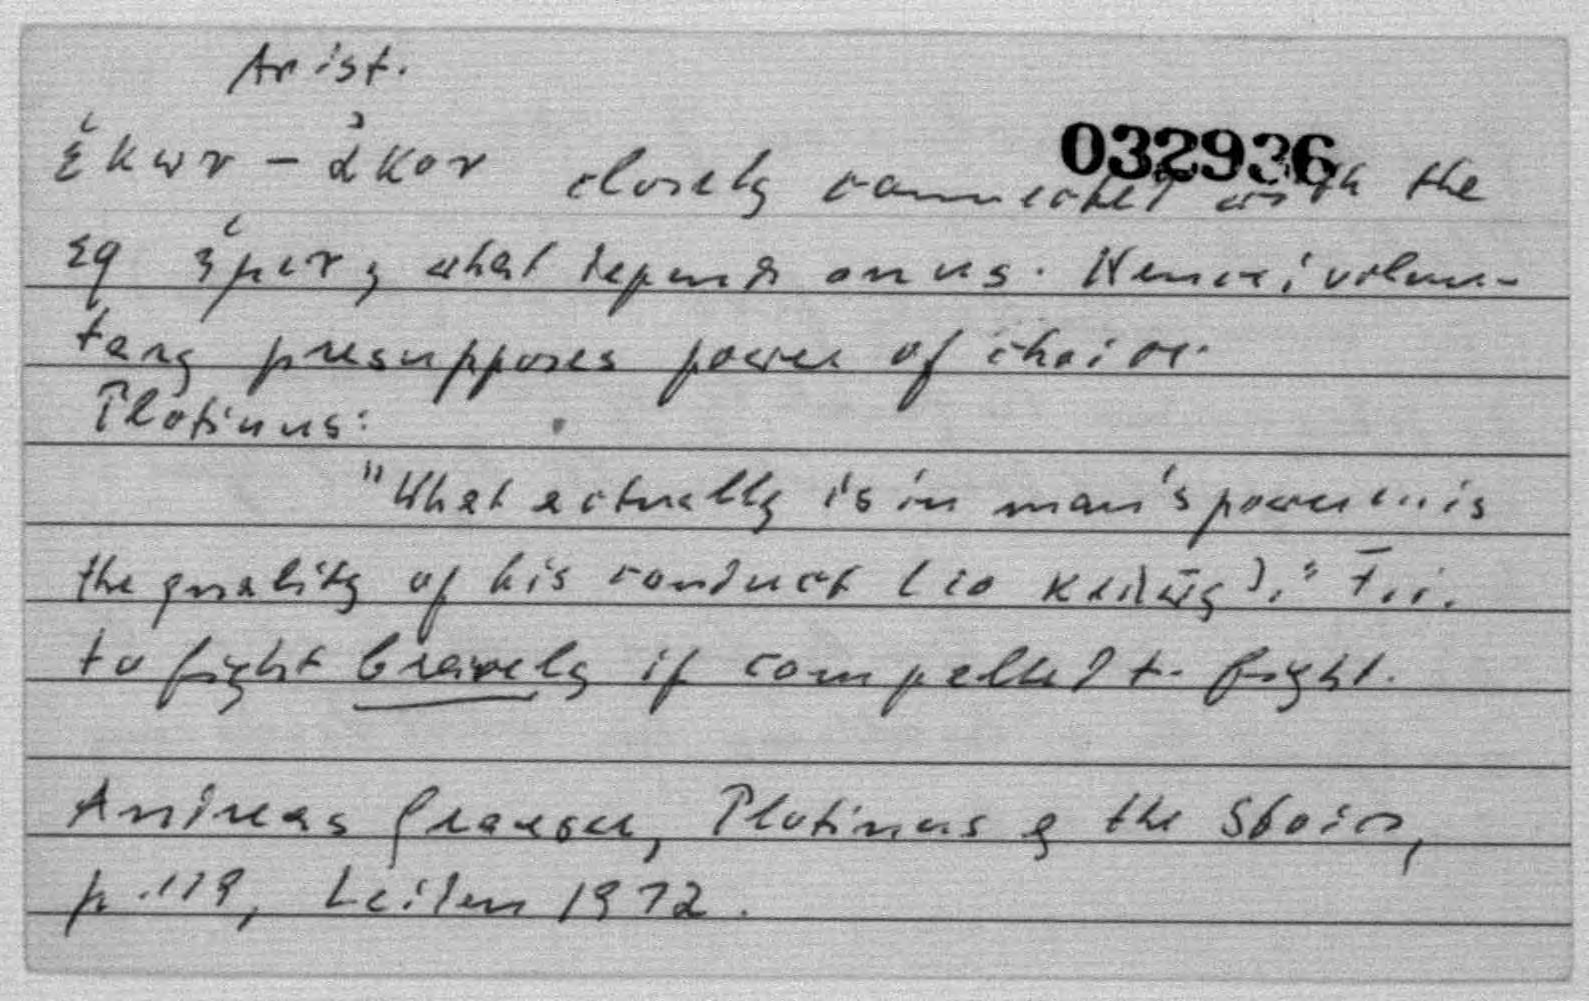 Arist.
032936
ἑκων – ἀκον closely connected with the
εφ ἡμιν, what depends on us. Hence: volun-
tary presupposes power of choice.
Plotinus:
"What actually is in man's power ... is
the quality of his conduct ( καλῶς)." I.i.
to fight bravely if compelled to fight.
Andreas Graeser, Plotinus & the Stoics,
p. 119, Leiden 1972.